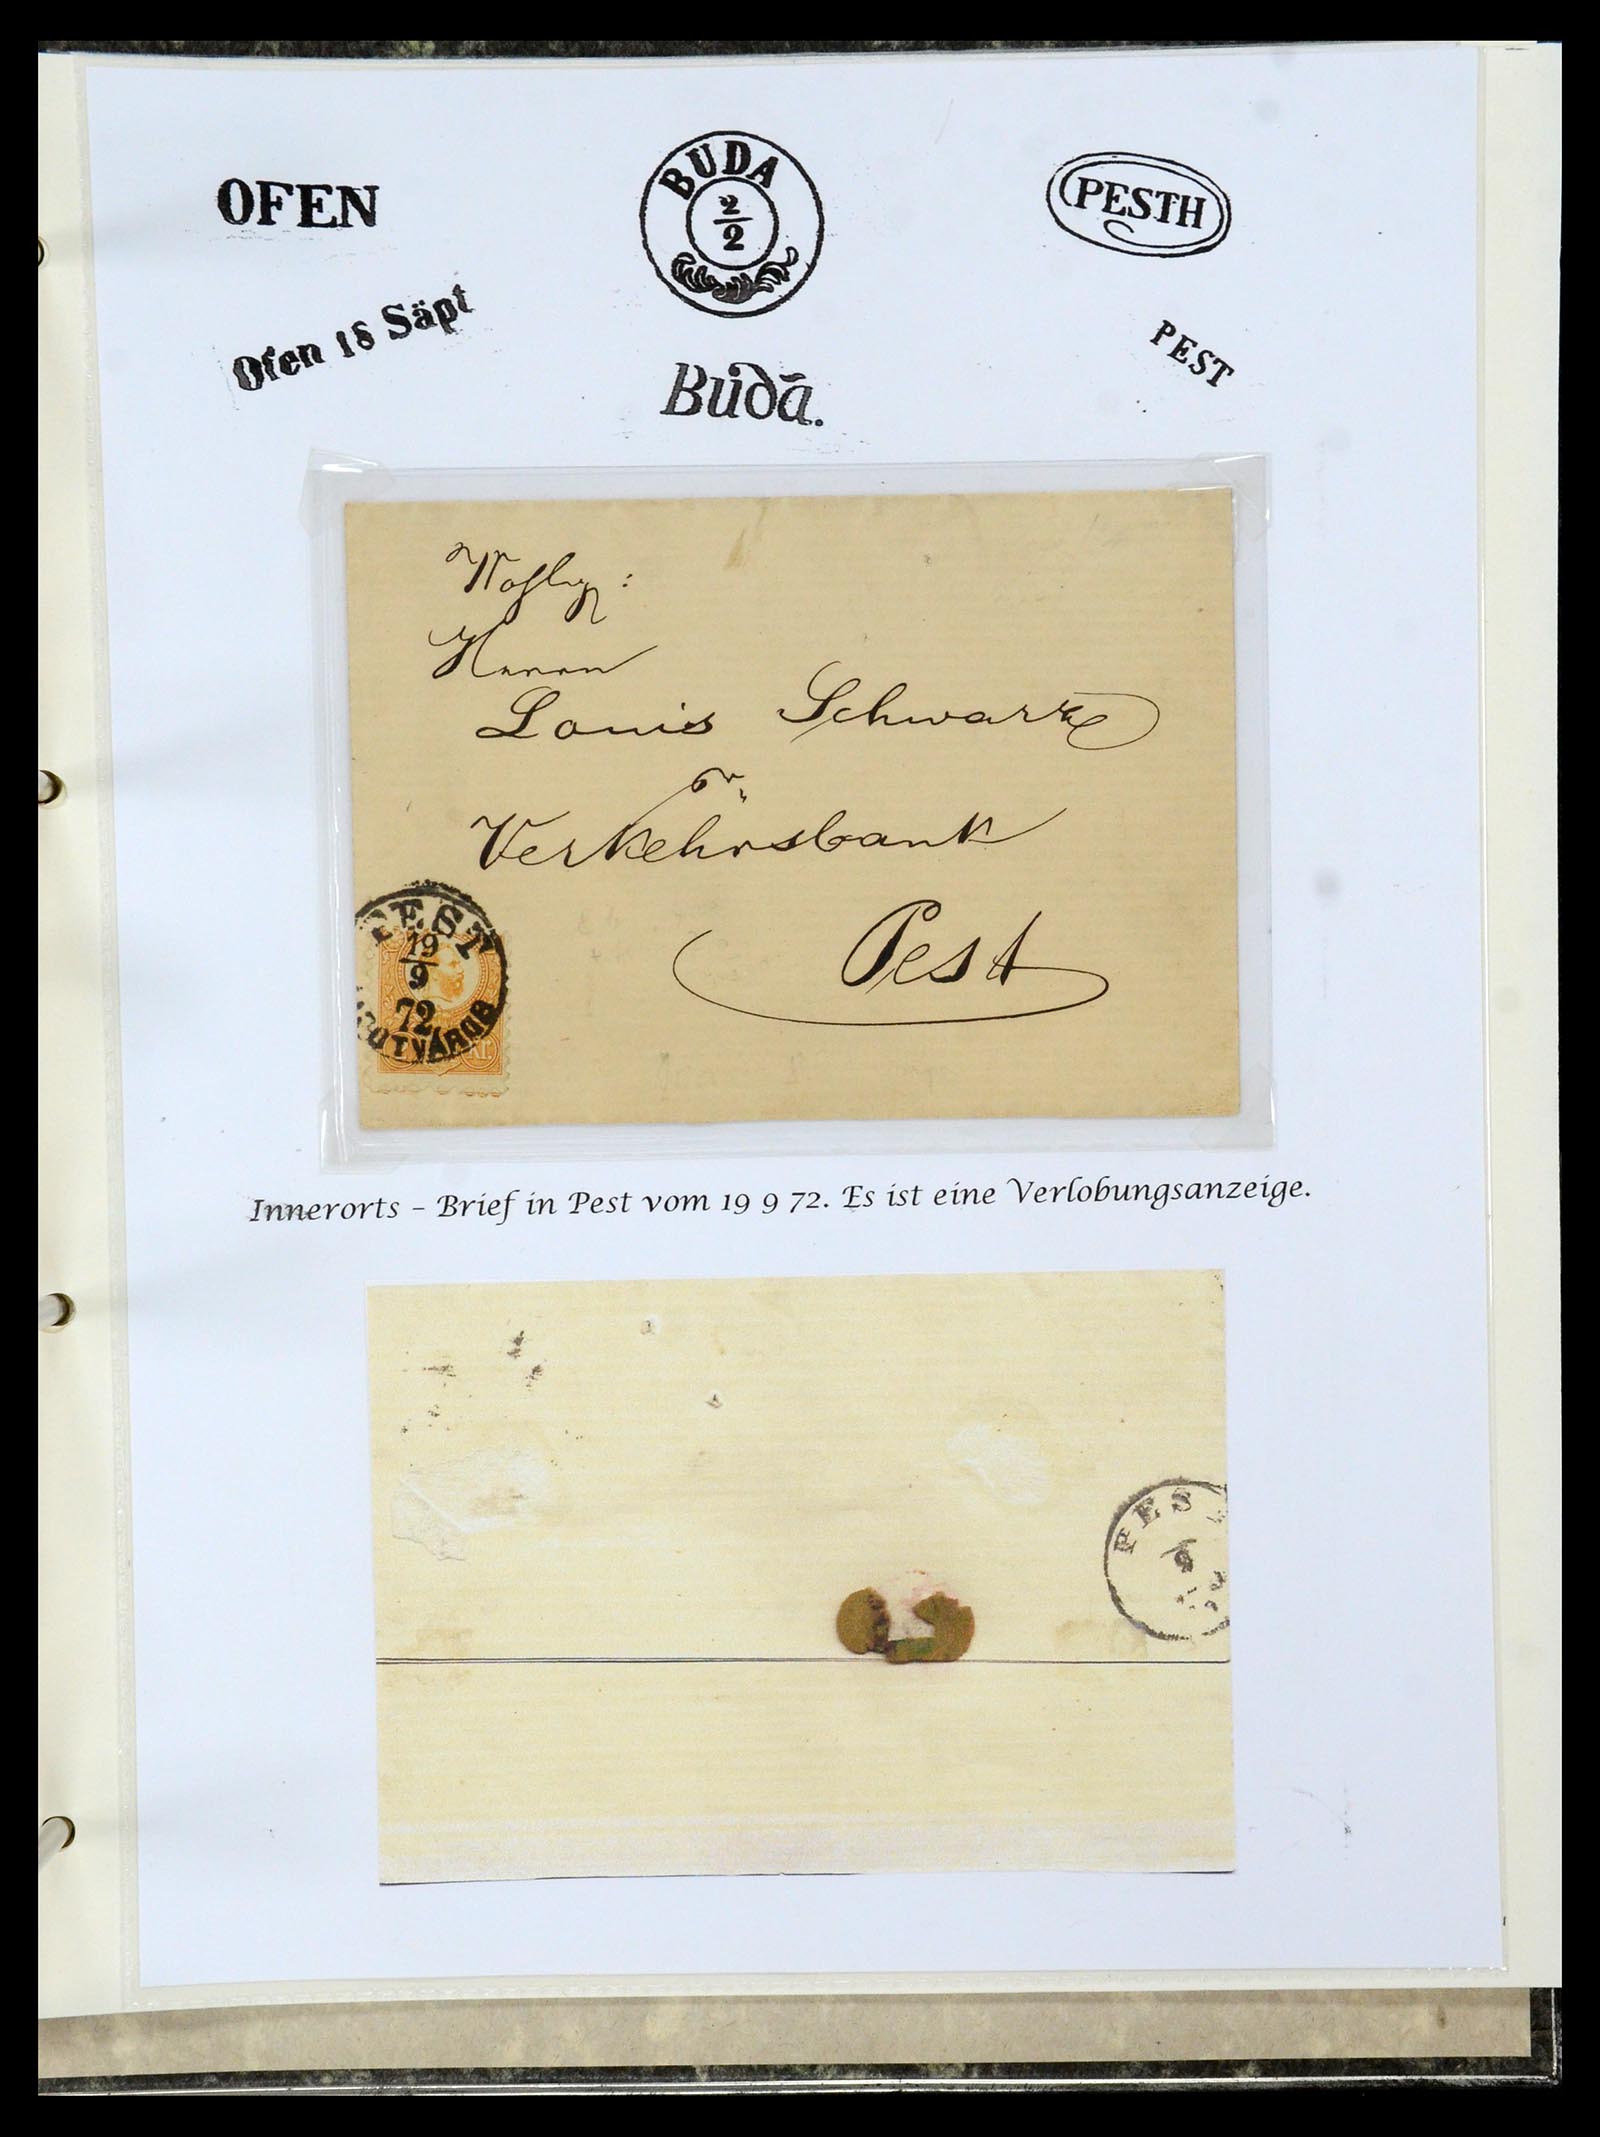 OFEN
BUDA
2
2
PESTH
Ofen 18 Säpt
PEST
Budā.
Herrn
Louis Schwarz
Verkehrsbank
Pest
PEST
19
9
72
Innerorts – Brief in Pest vom 19 9 72. Es ist eine Verlobungsanzeige.
PES
9